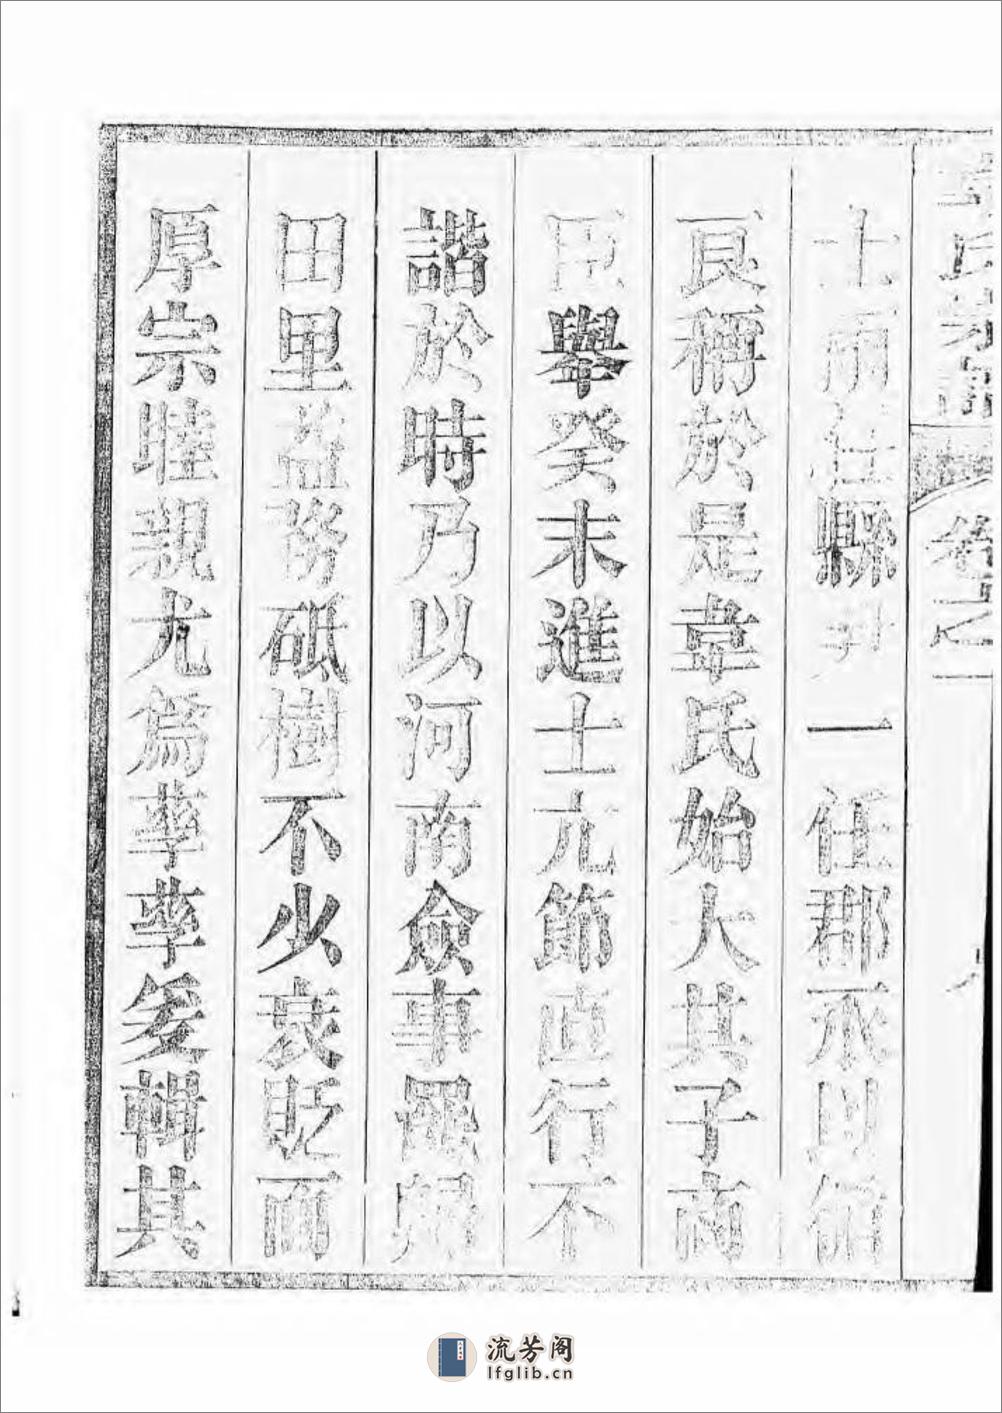 韋氏家譜 卷之一
士兩任縣尹一任郡丞以循
良稱於是韋氏始大其子商
臣舉癸未進士亢節直行不
諧於時乃以河南僉事罷歸
田里益務砥樹不少衰貶而
厚宗睦親尤為孳孳爰輯其
流芳阁
lfglib.cn